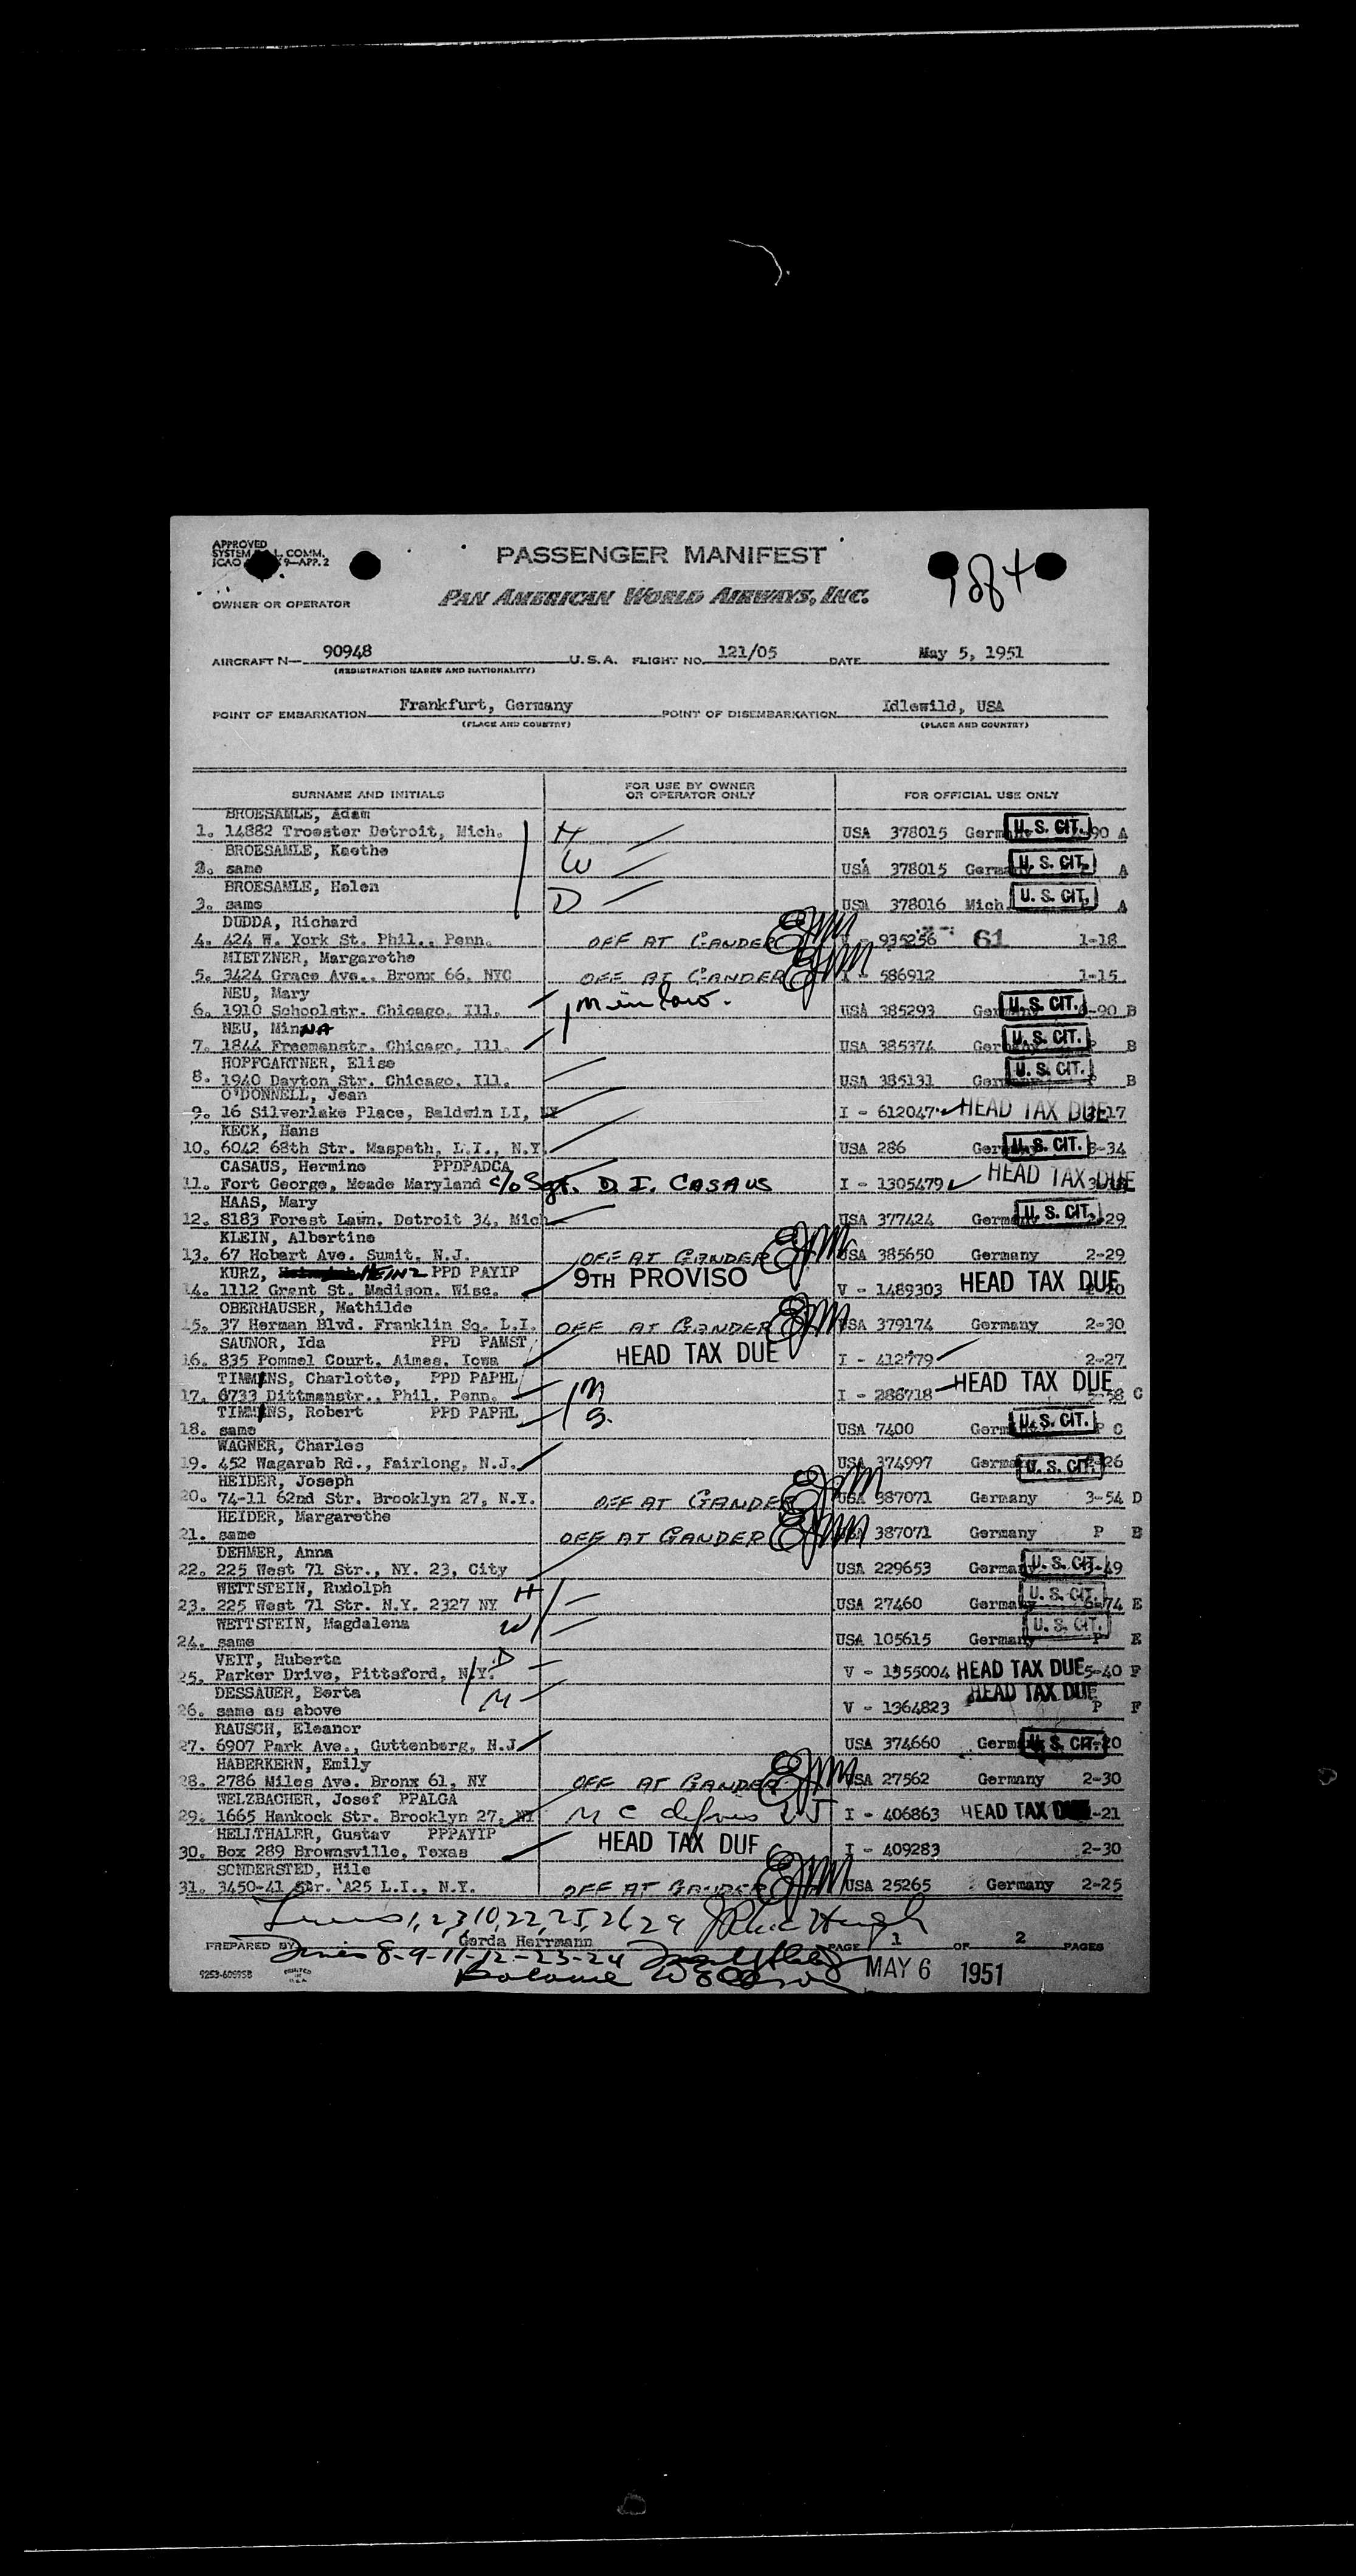 APPROVED
SYSTEM L. COMM.
ICAO 9—APP. 2
PASSENGER MANIFEST
OWNER OR OPERATOR
PAN AMERICAN WORLD AIRWAYS, INC.
AIRCRAFT N— 90948 U.S.A. FLIGHT NO. 121/05 DATE May 5, 1951
(REGISTRATION MARKS AND NATIONALITY)
POINT OF EMBARKATION Frankfurt, Germany POINT OF DISEMBARKATION Idlewild, USA
(PLACE AND COUNTRY) (PLACE AND COUNTRY)
SURNAME AND INITIALS FOR USE BY OWNER OR OPERATOR ONLY FOR OFFICIAL USE ONLY
BROESAMLE, Adam
1. 14882 Troester Detroit, Mich. H USA 378015 Germ U. S. CIT. 90 A
BROESAMLE, Kaethe
2. same W USA 378015 Germa U. S. CIT. A
BROESAMLE, Helen
3. same D USA 378016 Mich. U. S. CIT. A
DUDDA, Richard
4. 424 W. York St. Phil., Penn. OFF AT GANDER V - 935256 61 1-18
MIETZNER, Margarethe
5. 3424 Grace Ave., Bronx 66, NYC OFF AT GANDER I - 586912 1-15
NEU, Mary
6. 1910 Schoolstr. Chicago, Ill. M in law. USA 385293 Ge U. S. CIT. -90 B
NEU, MinNA
7. 1844 Freemanstr. Chicago, Ill. USA 385374 Ger U. S. CIT. P B
HOPFGARTNER, Elise
8. 1940 Dayton Str. Chicago, Ill. USA 385131 Ger U. S. CIT. P B
O'DONNELL, Jean
9. 16 Silverlake Place, Baldwin LI, NY I - 612047 HEAD TAX DUE 17
KECK, Hans
10. 6042 68th Str. Maspeth, L.I., N.Y. USA 286 Ger U. S. CIT. 3-34
CASAUS, Hermine PPDPADCA
11. Fort George, Meade Maryland c/o Sgt. D I. CASAUS I - 1305479 HEAD TAX DUE
HAAS, Mary
12. 8183 Forest Lawn, Detroit 34, Mich USA 377424 Germ U. S. CIT. 29
KLEIN, Albertine
13. 67 Hobart Ave. Sumit, N.J. OFF AT GANDER USA 385650 Germany 2-29
KURZ, HEINZ PPD PAYIP 9TH PROVISO
14. 1112 Grant St. Madison, Wisc. V - 1489303 HEAD TAX DUE
OBERHAUSER, Mathilde
15. 37 Herman Blvd. Franklin Sq. L.I. OFF AT GANDER USA 379174 Germany 2-30
SAUNOR, Ida PPD PAMST
16. 835 Pommel Court, Aimes, Iowa HEAD TAX DUE I - 412779 2-27
TIMMINS, Charlotte, PPD PAPHL
17. 6733 Dittmanstr., Phil. Penn. M I - 286718 HEAD TAX DUE 58 C
TIMMINS, Robert PPD PAPHL
18. same S. USA 7400 Germ U. S. CIT. P C
WAGNER, Charles
19. 452 Wagarab Rd., Fairlong, N.J. USA 374997 Germa U. S. CIT. 26
HEIDER, Joseph
20. 74-11 62nd Str. Brooklyn 27, N.Y. OFF AT GANDER USA 387071 Germany 3-54 D
HEIDER, Margarethe
21. same OFF AT GANDER USA 387071 Germany P B
DEHMER, Anna
22. 225 West 71 Str., NY. 23, City USA 229653 Germa U. S. CIT. 49
WETTSTEIN, Rudolph H
23. 225 West 71 Str. N.Y. 2327 NY USA 27460 Germa U. S. CIT. 74 E
WETTSTEIN, Magdalena W
24. same USA 105615 German U. S. CIT. P E
VEIT, Huberta D
25. Parker Drive, Pittsford, N.Y. V - 1355004 HEAD TAX DUE 5-40 F
DESSAUER, Berta M
26. same as above V - 1364823 HEAD TAX DUE P F
RAUSCH, Eleanor
27. 6907 Park Ave., Guttenberg, N.J. USA 374660 Germ U. S. CIT. 20
HABERKERN, Emily
28. 2786 Miles Ave. Bronx 61, NY OFF AT GANDER USA 27562 Germany 2-30
WELZBACHER, Josef PPALGA
29. 1665 Hankock Str. Brooklyn 27, NY I - 406863 HEAD TAX DUE -21
HELLTHALER, Gustav PPPAYIP
30. Box 289 Brownsville, Texas HEAD TAX DUE I - 409283 2-30
SONDERSTED, Hile
31. 3450-41 Str. A25 L.I., N.Y. OFF AT GANDER USA 25265 Germany 2-25
1, 2, 3, 10, 22, 25, 26, 29
PREPARED BY Gerda Herrmann PAGE 1 OF 2 PAGES
8-9-11-12-23-24
Balance
MAY 6 1951
PRINTED IN U.S.A.